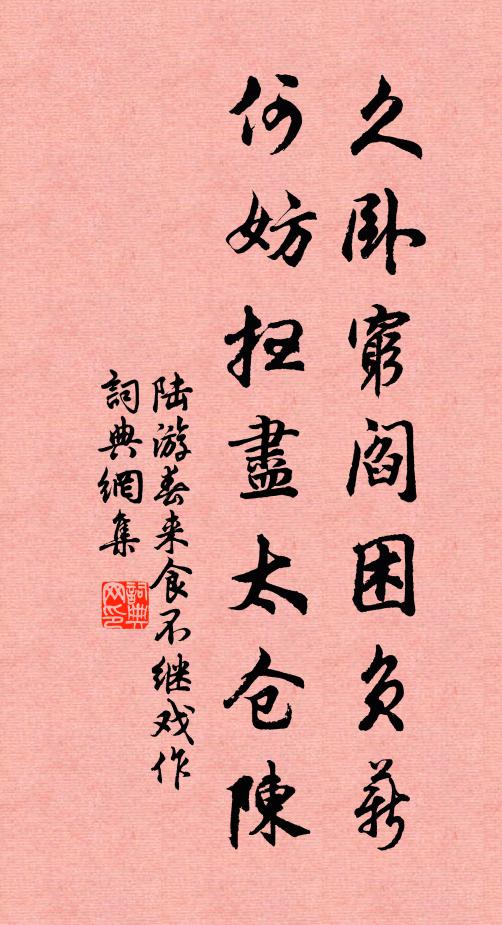 久卧窮阎困负薪
何妨扫盡太仓陳
陆游春来食不继戏作
詞典網集
詞典网印